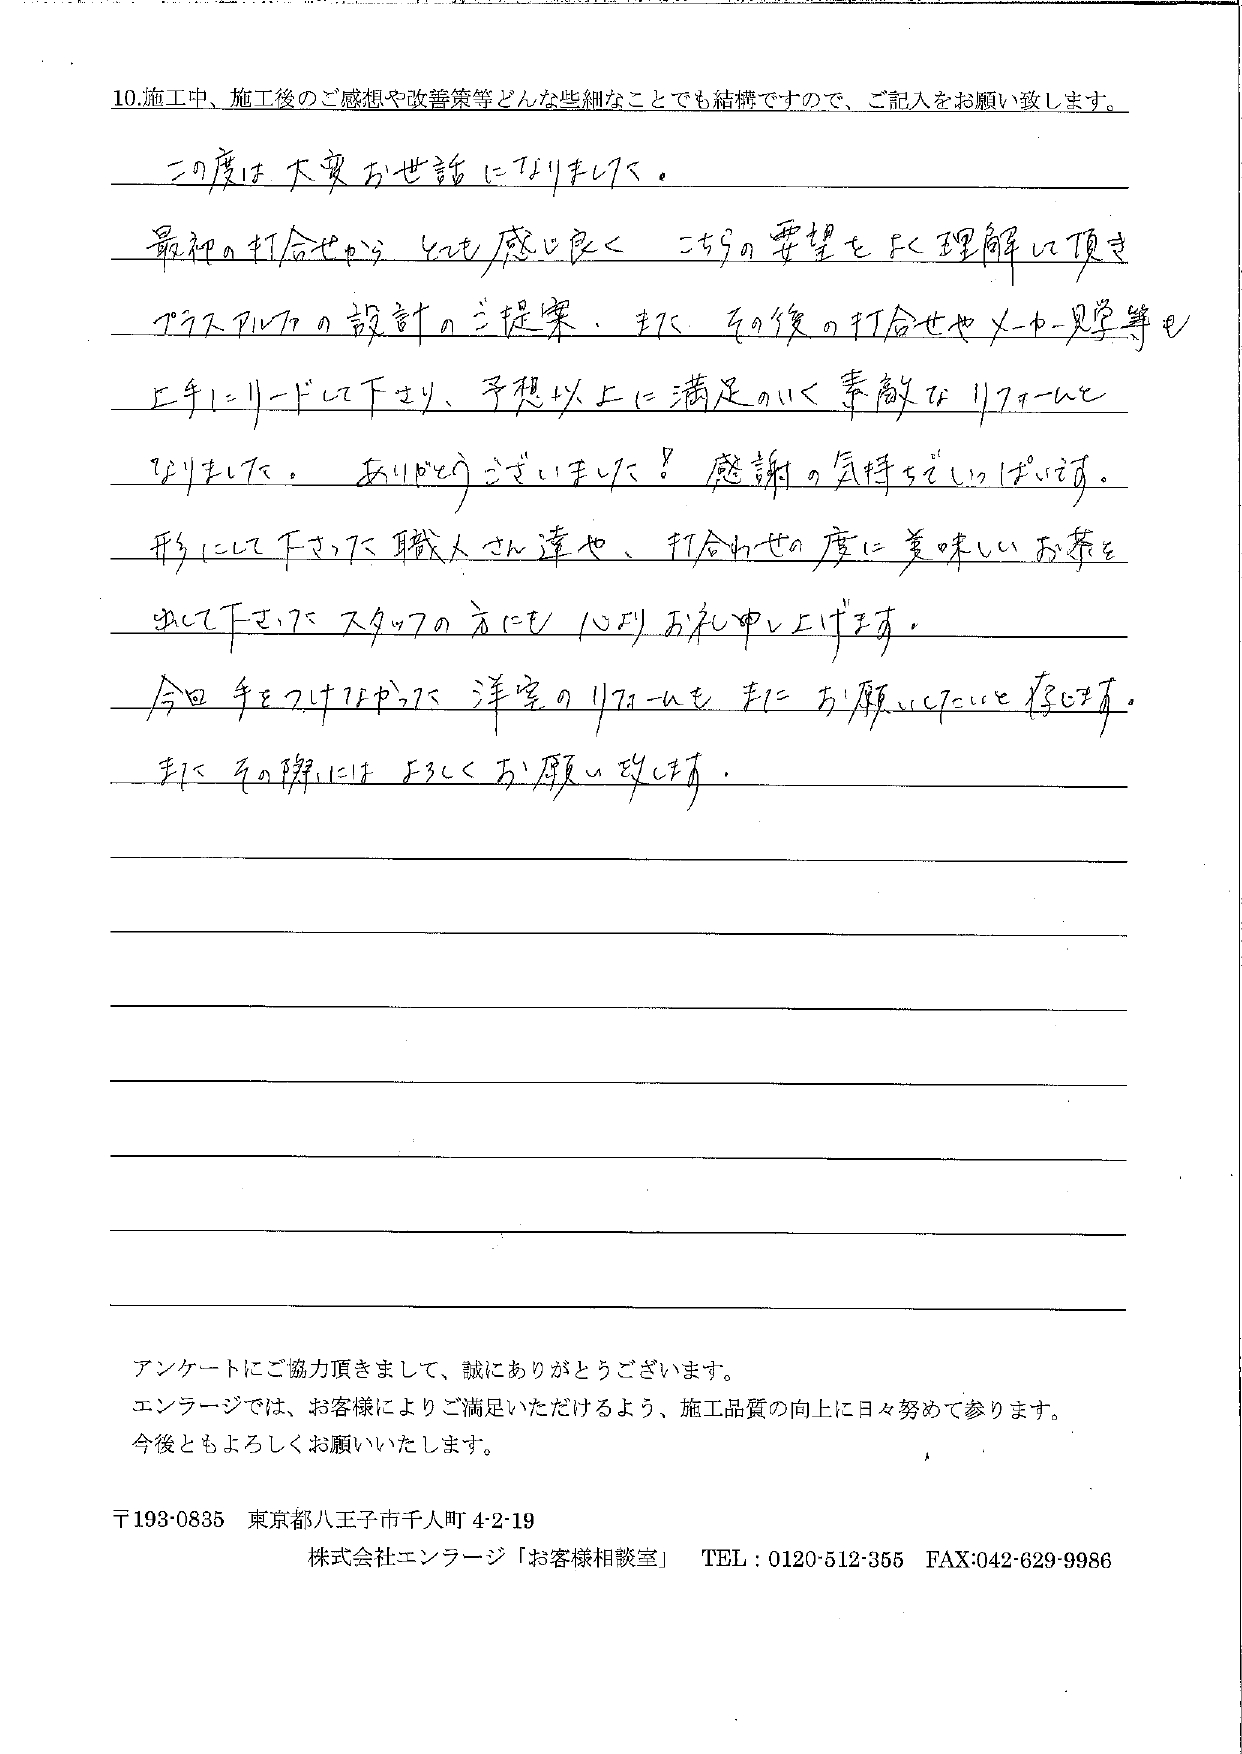 10.施工中、施工後のご感想や改善策等どんな些細なことでも結構ですので、ご記入をお願い致します。
この度は大変お世話になりました。
最初の打合せから とても感じ良く こちらの要望をよく理解して頂き
プラスアルファの設計のご提案、また その後の打合せやメーカー見学等も
上手にリードして下さり、予想以上に満足のいく素敵なリフォームと
なりました。 ありがとうございました! 感謝の気持ちでいっぱいです。
形にして下さった職人さん達や、打合わせの度に美味しいお茶を
出して下さった スタッフの方にも 心よりお礼申し上げます。
今回 手をつけなかった 洋室のリフォームも またお願いしたいと存じます。
また その際には よろしくお願い致します。
アンケートにご協力頂きまして、誠にありがとうございます。
エンラージでは、お客様によりご満足いただけるよう、施工品質の向上に日々努めて参ります。
今後ともよろしくお願いいたします。
〒193-0835 東京都八王子市千人町 4-2-19
株式会社エンラージ「お客様相談室」 TEL:0120-512-355 FAX:042-629-9986